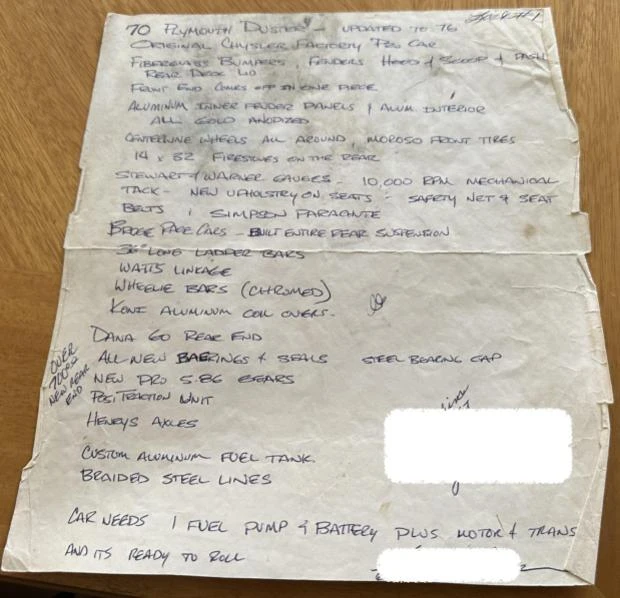 70 PLYMOUTH DUSTER - UPDATED TO 76
ORIGINAL CHYSLER FACTORY PRO CAR
FIBERGLASS BUMPERS, FENDERS HOOD & SCOOP & DASH
REAR DECK LID
FRONT END COMES OFF IN ONE PIECE
ALUMINUM INNER FENDER PANELS & ALUM. INTERIOR
ALL GOLD ANODIZED
CENTERLINE WHEELS ALL AROUND, MOROSO FRONT TIRES
14 x 32 FIRESTONES ON THE REAR
STEWART & WARNER GAUGES - 10,000 RPM MECHANICAL
TACK - NEW UPHOLSTRY ON SEATS - SAFETY NET & SEAT
BELTS, SIMPSON PARACHTE
RACE CARS - BUILT ENTIRE REAR SUSPENSION
36" LONG LADDER BARS
WATTS LINKAGE
WHEELIE BARS (CHROMED)
KONI ALUMINUM COIL OVERS.
DANA 60 REAR END
ALL NEW BAERINGS & SEALS STEEL BEARING CAP
NEW PRO 5.86 GEARS
POSITRACTION UNIT
HENRYS AXLES
OVER
NEW REAR
END
CUSTOM ALUMINUM FUEL TANK.
BRAIDED STEEL LINES
CAR NEEDS 1 FUEL PUMP & BATTERY PLUS MOTOR & TRANS
AND ITS READY TO ROLL